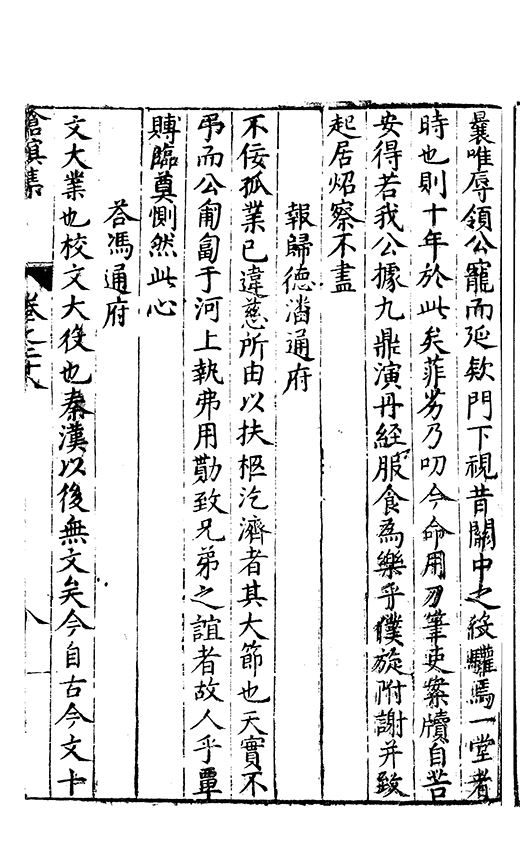 曩唯辱領公寵而延欵門下視昔關中之役驩焉一堂者
時也則十年於此矣菲劣乃叨今命用刀筆吏案牘自苦
安得若我公據九鼎演丹經服食為樂乎僕旋附謝并致
起居炤察不盡
報歸德潘通府
不佞孤業已違慈所由以扶柩汔濟者其大節也天實不
弔而公匍匐于河上執弗用勩致兄弟之誼者故人乎覃
賻臨奠惻然此心
荅馮通府
文大業也校文大役也秦漢以後無文矣今自古今文十
滄溟集
卷之二十八
八